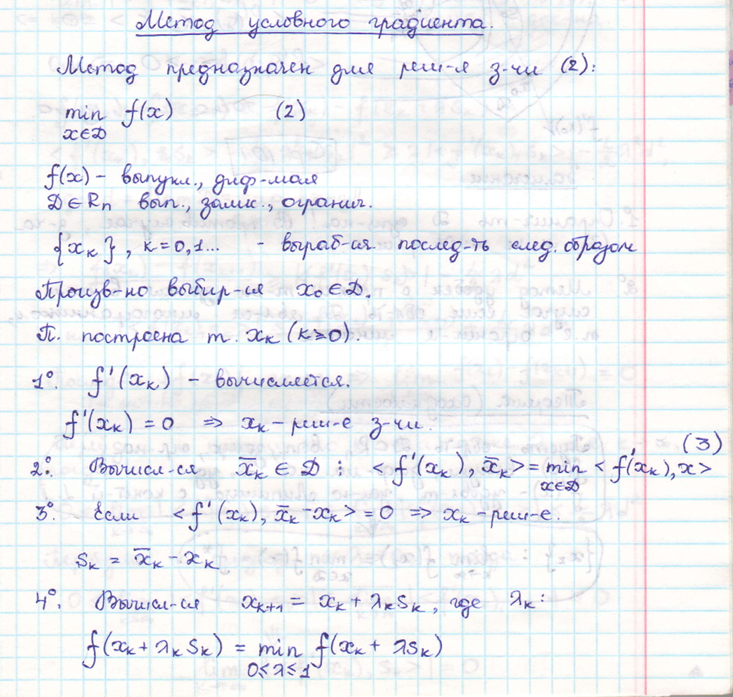 Метод условного градиента.
Метод предназначен для реш-я з-чи (2):
min f(x) (2)
x∈D
f(x) - выпукл., диф-мая
D∈Rn вып., замк., огранич.
{xk}, k=0,1... - выраб-ся послед-ть след. образом
Произв-но выбир-ся x0∈D.
П. построена т. xk (k≥0).
1°. f'(xk) - вычисляется.
f'(xk) = 0 ⇒ xk - реш-е з-чи.
(3)
2°. Вычисл-ся x̄k ∈ D : <f'(xk), x̄k> = min <f'(xk), x>
x∈D
3°. Если <f'(xk), x̄k - xk> = 0 ⇒ xk - реш-е.
sk = x̄k - xk
4°. Вычисл-ся xk+1 = xk + λk sk, где λk:
f(xk + λk sk) = min f(xk + λsk)
0≤λ≤1